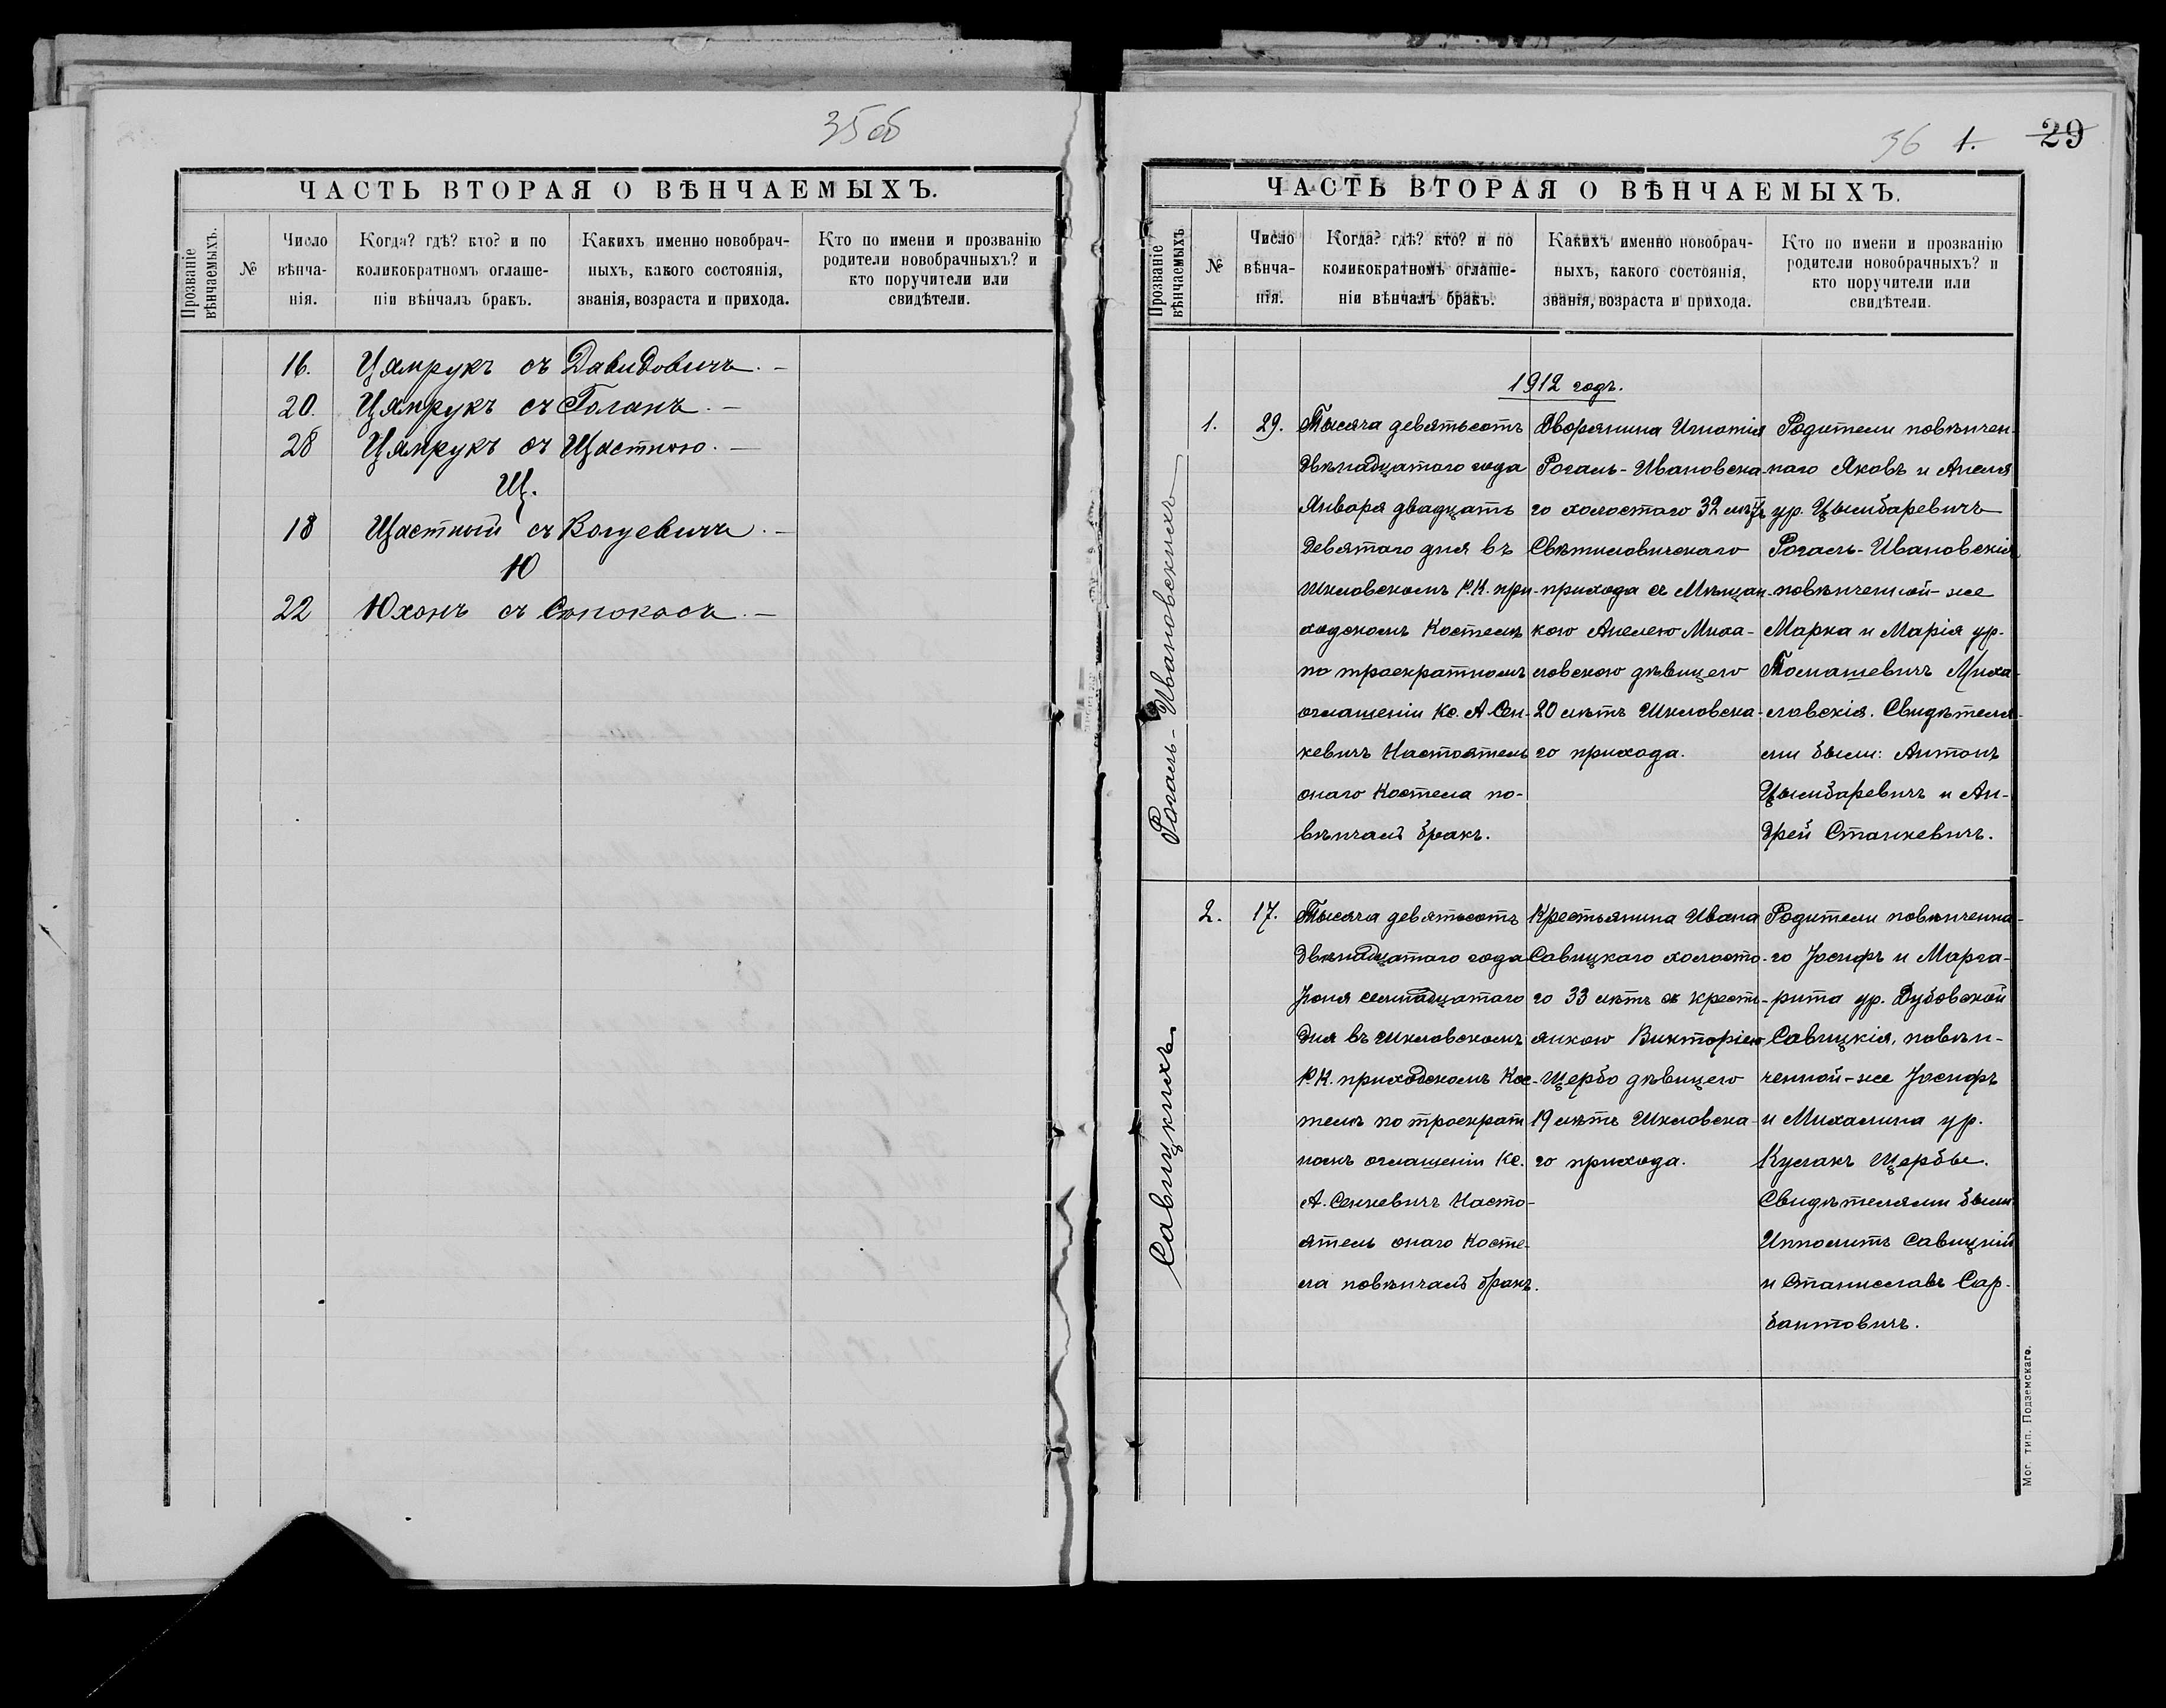 35 об
ЧАСТЬ ВТОРАЯ О ВѢНЧАЕМЫХЪ.
Прозваніе вѣнчаемыхъ.
№
Число вѣнча-
нія.
Когда? гдѣ? кто? и по
коликократномъ оглаше-
ніи вѣнчалъ бракъ.
Какихъ именно новобрач-
ныхъ, какого состоянія,
званія, возраста и прихода.
Кто по имени и прозванію
родители новобрачныхъ? и
кто поручители или
свидѣтели.
16. Цямрукъ съ Давидовичъ. —
20. Цямрукъ съ Голанъ. —
28 Цямрукъ съ Щастною. —
Щ.
18 Щастный съ Волуевичъ. —
Ю
22 Юхонъ съ Сюпокасъ. —
36 1. 29
ЧАСТЬ ВТОРАЯ О ВѢНЧАЕМЫХЪ.
Прозваніе вѣнчаемыхъ
№
Число
вѣнча-
нія.
Когда? гдѣ? кто? и по
коликократномъ оглаше-
ніи вѣнчалъ бракъ.
Какихъ именно новобрач-
ныхъ, какого состоянія,
званія, возраста и прихода.
Кто по имени и прозванію
родители новобрачныхъ? и
кто поручители или
свидѣтели.
1912 годъ.
Рогаль-Ивановскихъ
1.
29.
Тысяча девятьсотъ
двѣнадцатаго года
Января двадцать
девятаго дня въ
Шкловскомъ Р.К. при-
ходскомъ Костелѣ
по троекратномъ
оглашеніи Кс. А Сен-
кевичъ Настоятель
онаго Костела по-
вѣнчалъ бракъ.
Дворянина Игнатія
Рогаль-Ивановска-
го холостаго 32 лѣтъ
Свѣтиловичскаго
прихода съ Мѣщан-
кою Анелею Миха-
ловскою дѣвицею
20 лѣтъ Шкловска-
го прихода.
Родители повѣнчен-
наго Яковъ и Анеля
ур. Цымбаревичъ
Рогаль-Ивановскія
повѣнченной-же
Марка и Марія ур.
Томашевичъ Миха-
ловскія. Свидѣтеля-
ми были: Антонъ
Цымбаревичъ и Ан-
дрей Станкевичъ.
Савицкихъ
2.
17.
Тысяча девятьсотъ
двѣнадцатаго года
Іюня семнадцатаго
дня въ Шкловскомъ
Р.К. приходскомъ Кос-
телѣ по троекрат
номъ оглашеніи Кс.
А. Сенкевичъ Насто-
ятель онаго Косте-
ла повѣнчалъ бракъ.
Крестьянина Ивана
Савицкаго холоста-
го 33 лѣтъ съ крестъ-
янкою Викторіею
Щербо дѣвицею
19 лѣтъ Шкловска-
го прихода.
Родители повѣнченна-
го Іосифъ и Марга-
рита ур. Дубовской
Савицкія, повѣн-
ченной-же Іосифъ
и Михалина ур.
Кулакъ Щербы.
Свидѣтелями были
Ипполитъ Савицкій
и Станиславъ Сар-
бантовичъ.
Мог. тип. Подземскаго.